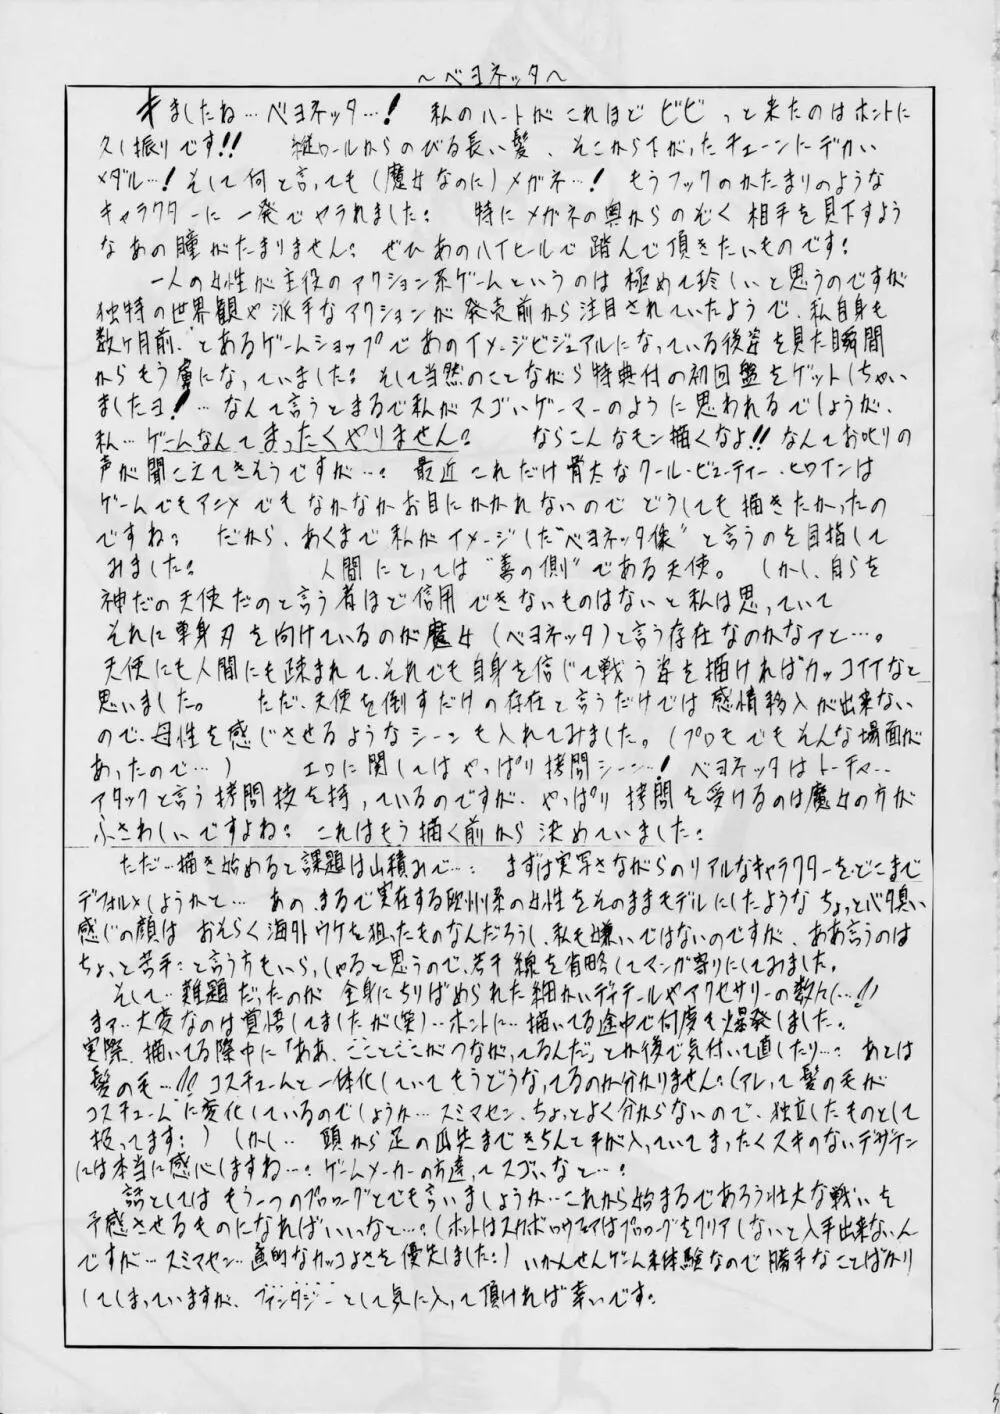 ～ベヨネッタ～
きましたね…ベヨネッタ…! 私のハートがこれほどビビっと来たのはホントに
久し振りです!! 縦ロールからのびる長い髪、そこから下がったチェーンにデカい
メダル…! そして何と言っても(魔女なのに)メガネ…! もうフックのかたまりのような
キャラクターに一発でヤラれました。 特にメガネの奥からのぞく相手を見下すよう
なあの瞳がたまりません。 ぜひあのハイヒールで踏んで頂きたいものです。
一人の女性が主役のアクション系ゲームというのは極めて珍しいと思うのですが
独特の世界観や派手なアクションが発売前から注目されていたようで、私自身も
数ヶ月前、とあるゲームショップであのイメージビジュアルになっている後姿を見た瞬間
からもう虜になっていました。 そして当然のことながら特典付の初回盤をゲットしちゃい
ましたヨ!…なんて言うとまるで私がスゴいゲーマーのように思われるでしょうが、
私…ゲームなんてまったくやりません。 ならこんなモン描くなよ!!なんてお叱りの
声が聞こえてきそうですが…。 最近これだけ骨太なクール・ビューティー・ヒロインは
ゲームでもアニメでもなかなかお目にかかれないのでどうしても描きたかったの
ですね。 だから、あくまで私がイメージした“ベヨネッタ像”と言うのを目指して
みました。 人間にとっては“善の側”である天使。 しかし、自らを
神だの天使だのと言う者ほど信用できないものはないと私は思っていて
それに単身刃を向けているのが魔女(ベヨネッタ)と言う存在なのかなァと…。
天使にも人間にも疎まれて、それでも自身を信じて戦う姿を描ければカッコイイなと
思いました。 ただ、天使を倒すだけの存在と言うだけでは感情移入が出来ない
ので、母性を感じさせるようなシーンも入れてみました。(プロモでもそんな場面が
あったので…) エロに関してはやっぱり拷問シーン…! ベヨネッタはトーチャー・
アタックと言う拷問技を持っているのですが、やっぱり拷問を受けるのは魔女の方が
ふさわしいですよね。これはもう描く前から決めていました。
ただ…描き始めると課題は山積みで…。 まずは実写さながらのリアルなキャラクターをどこまで
デフォルメしようかと… あの、まるで実在する欧州系の女性をそのままモデルにしたようなちょっとバタ臭い
感じの顔はおそらく海外ウケを狙ったものなんだろうし、私も嫌いではないのですが、ああ言うのは
ちょっと苦手…と言う方もいらっしゃると思うので、若干線を省略してマンガ寄りにしてみました。
そして…難題だったのが全身にちりばめられた細かいディテールやアクセサリーの数々…!!
まァ…大変なのは覚悟してましたが(笑)…ホントに…描いてる途中で何度も爆発しました。
実際、描いてる際中に「ああ、こことここがつながってるんだ」とか後で気付いて直したり…。 あとは
髪の毛…!!コスチュームと一体化していてもうどうなってるのか分かりません。(アレって髪の毛が
コスチュームに変化しているのでしょうか…スミマセン、ちょっとよく分からないので、独立したものとして
扱ってます。) しかし…頭から足の爪先まできちんと手が入っていてまったくスキのないデザイン
には本当に感心しますね…。ゲームメーカーの方達ってスゴいなと…。
話としてはもう一つのプロローグとでも言いましょうか…これから始まるであろう壮大な戦いを
予感させるものになればいいなと…。(ホントはスカボロウフェアはプロローグをクリアしないと入手出来ないん
ですが…スミマセン…画的なカッコよさを優先しました。) いかんせんゲーム未体験なので勝手なことばかり
してしまっていますが、ファンタジーとして気に入って頂ければ幸いです。